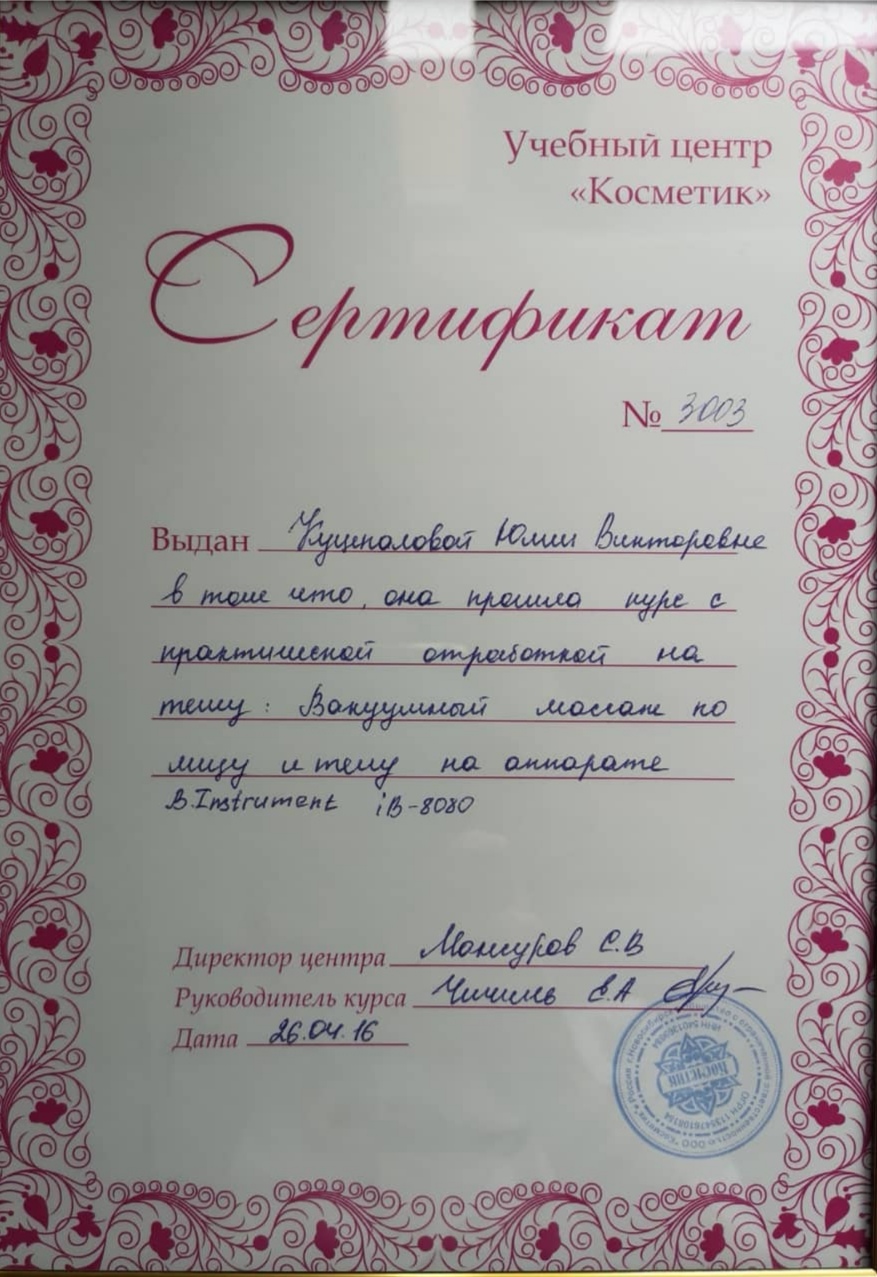 Учебный центр
«Косметик»
Сертификат
№ 3003
Выдан Юлии Викторовне
в том что, она прошла курс с
практической отработкой на
тему: Вакуумный массаж по
лицу и телу на аппарате
B.Instrument iB-8080
Директор центра С.В
Руководитель курса Е.А
Дата 26.04.16
Косметик